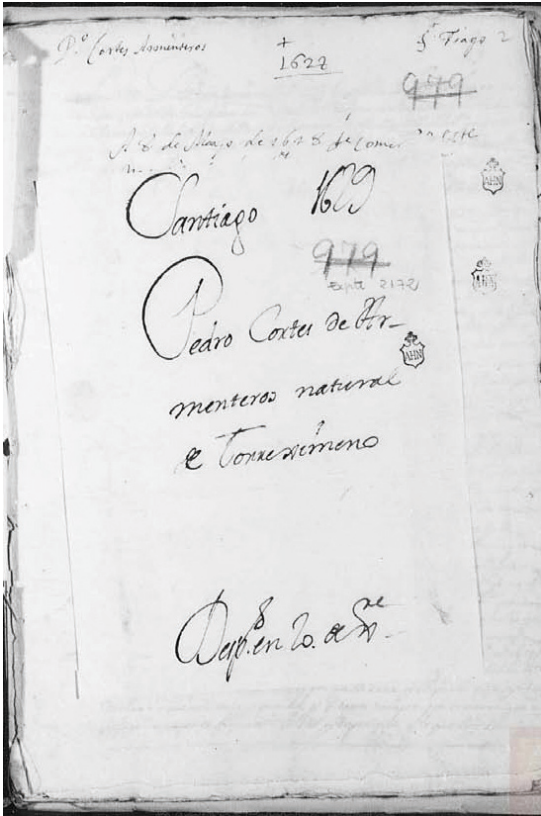 P.º Cortes Armenteros
+
1627
S. Tiago 2
979
A 8 de Mayo de 1628 se
Santiago 1629
979
Expte 2172
Pedro Cortes de Ar-
menteros natural
de Torreximeno
Desp.º en 20. de
AHN
AHN
AHN